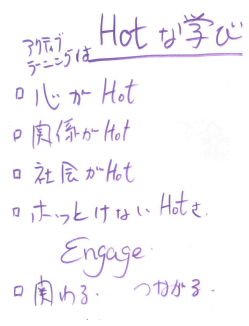 アクティブ
ラーニングは Hotな学び
□ 心がHot
□ 関係がHot
□ 社会がHot
□ ホっとけないHotさ.
Engage.
□ 関わる. つながる.